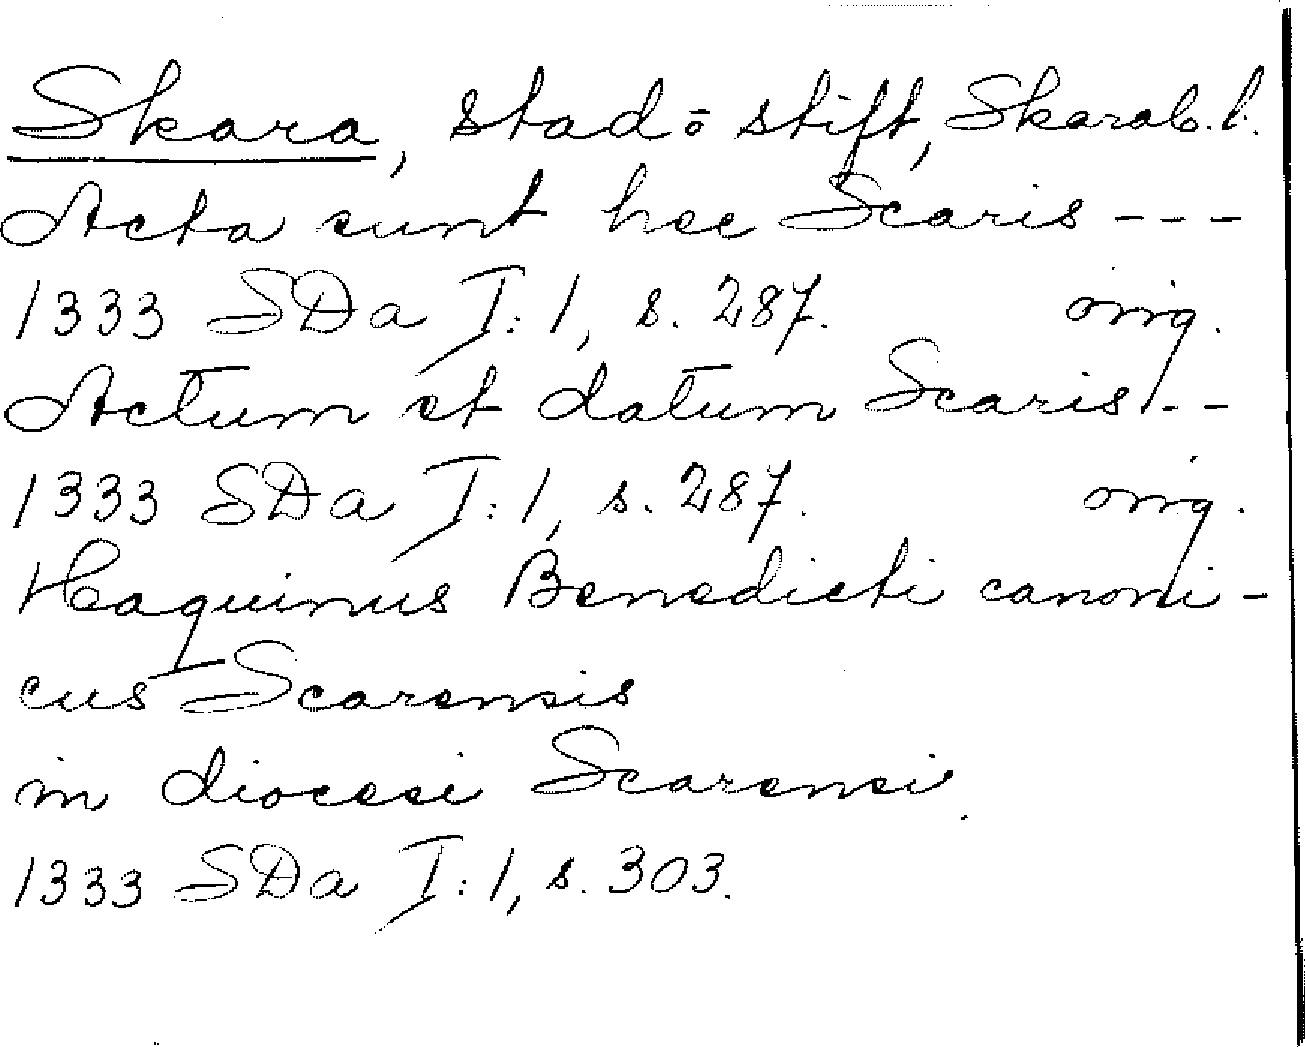 Skara, stad o stift, Skarab. l.
Acta sunt hec Scaris ---
1333 SDa I:1, s. 287. orig.
Actum et datum Scaris --
1333 SDa I:1, s. 287. orig.
Haquinus Benedicti canoni-
cus Scarensis
in diocesi Scarensi.
1333 SDa I:1, s. 303.